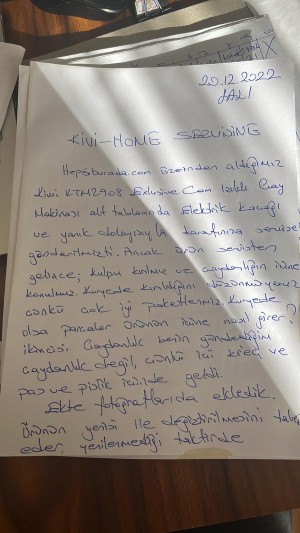 20.12.2022
SALI
KIWI-HOME SERVISİNE
Hepsiburada.com üzerinden aldığımız
Kiwi KTM2908 Exlusive Cam Işıklı Çay
Makinası alt tablasında Elektrik kaçağı
ve yanık dolayısıyla tarafınıza servise
göndermiştik. Ancak ürün servisten
gelince; kulpu kırılmış ve çaydanlığın içine
konulmuş. Kuryede kırıldığını düşünmüyoruz
çünkü çok iyi paketlenmiş. Kuryede
olsa parçalar ürünün içine nasıl girer?
ikincisi Çaydanlık benim gönderdiğim
çaydanlık değil, çünkü içi kireç ve
pas ve pislik içinde geldi.
Ekte fotoğraflarıda ekledik.
Ürünün yenisi ile değiştirilmesini talep
eder, yenilenmediği taktirde